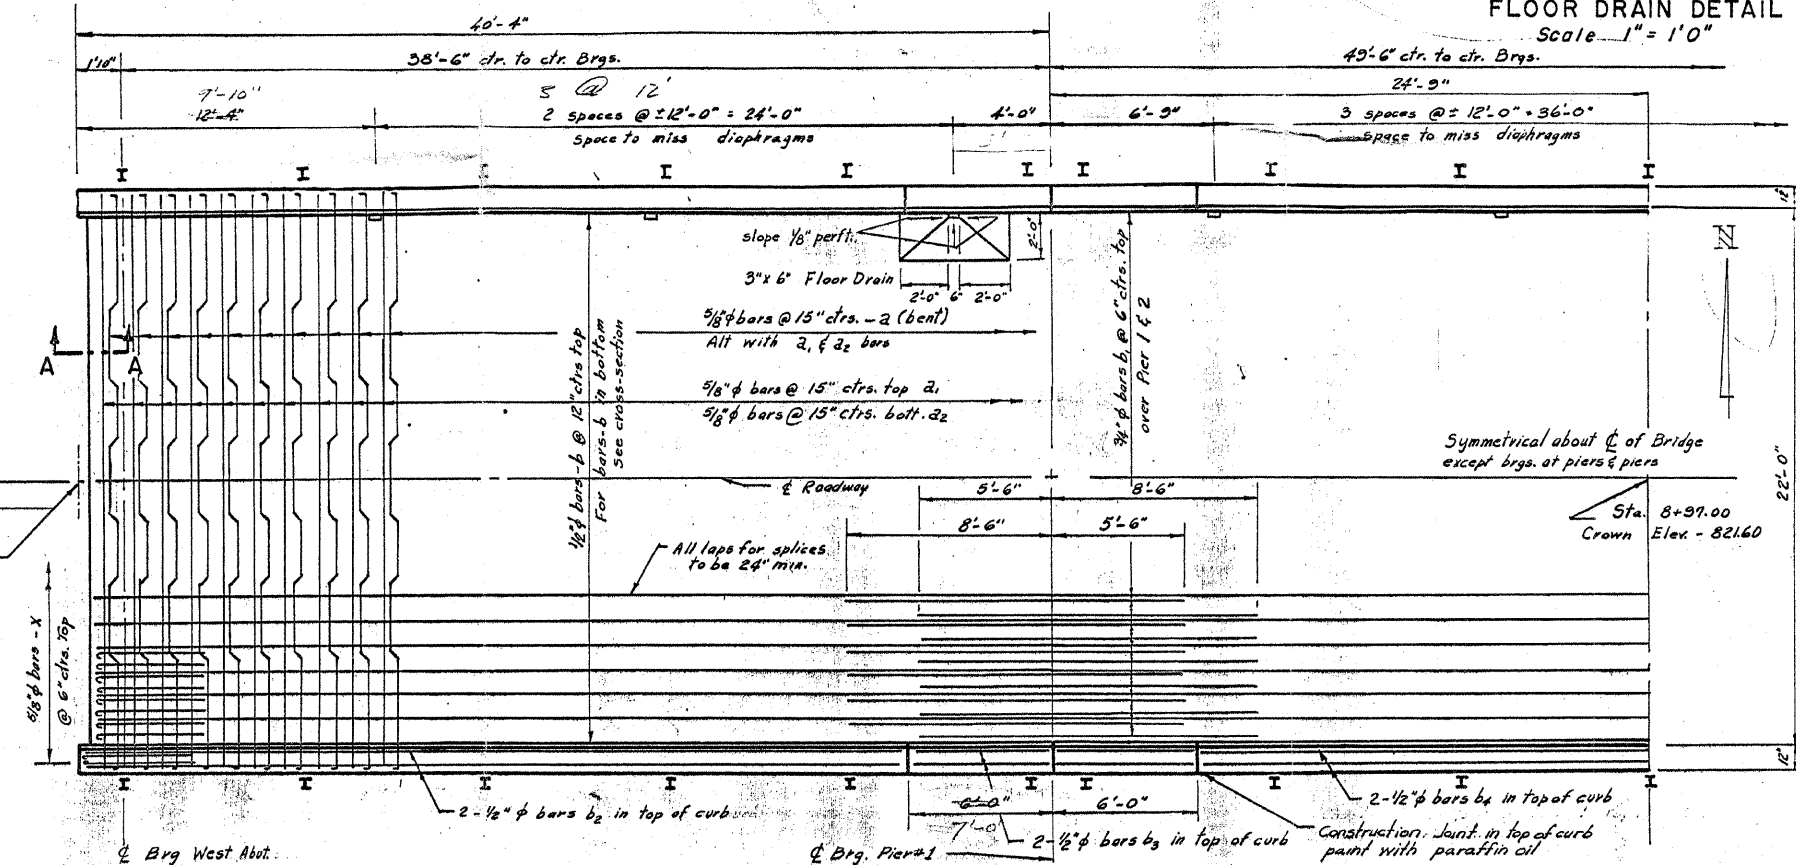 FLOOR DRAIN DETAIL
Scale 1" = 1'0"
40'-4"
1'10"
38'-6" ctr. to ctr. Brgs.
49'-6" ctr. to ctr. Brgs.
24'-9"
9'-10"
12'-4"
3 @ 12'
2 spaces @ ±12'-0" = 24'-0"
space to miss diaphragms
4'-0"
6'-9"
3 spaces @ ± 12'-0" = 36'-0"
space to miss diaphragms
I I I I I I I I I
12"
slope 1/8" per ft.
2'-0"
3" x 6" Floor Drain
2'-0" 6" 2'-0"
N
5/8"φ bars @ 15" ctrs. - a (bent)
Alt with a, & a2 bars
A A
5/8"φ bars @ 15" ctrs. top a1
5/8"φ bars @ 15" ctrs. bott. a2
1/2"φ bars-b @ 12" ctrs top
For bars-b in bottom
see cross-section
3/4"φ bars b, @ 6" ctrs. top
over Pier 1 & 2
Symmetrical about ℄ of Bridge
except brgs. at piers & piers
22'-0"
℄ Roadway
5'-6"
8'-6"
8'-6"
5'-6"
Sta. 8+97.00
Crown Elev. - 821.60
All laps for splices
to be 24" min.
5/8"φ bars - X
@ 6" ctrs. Top
12"
I I I I I I I I I
2-1/2" φ bars b2 in top of curb
6'-0"
7'-0"
6'-0"
2-1/2"φ bars b3 in top of curb
2-1/2"φ bars b4 in top of curb
Construction Joint in top of curb
paint with paraffin oil
℄ Brg West Abut.
℄ Brg. Pier #1